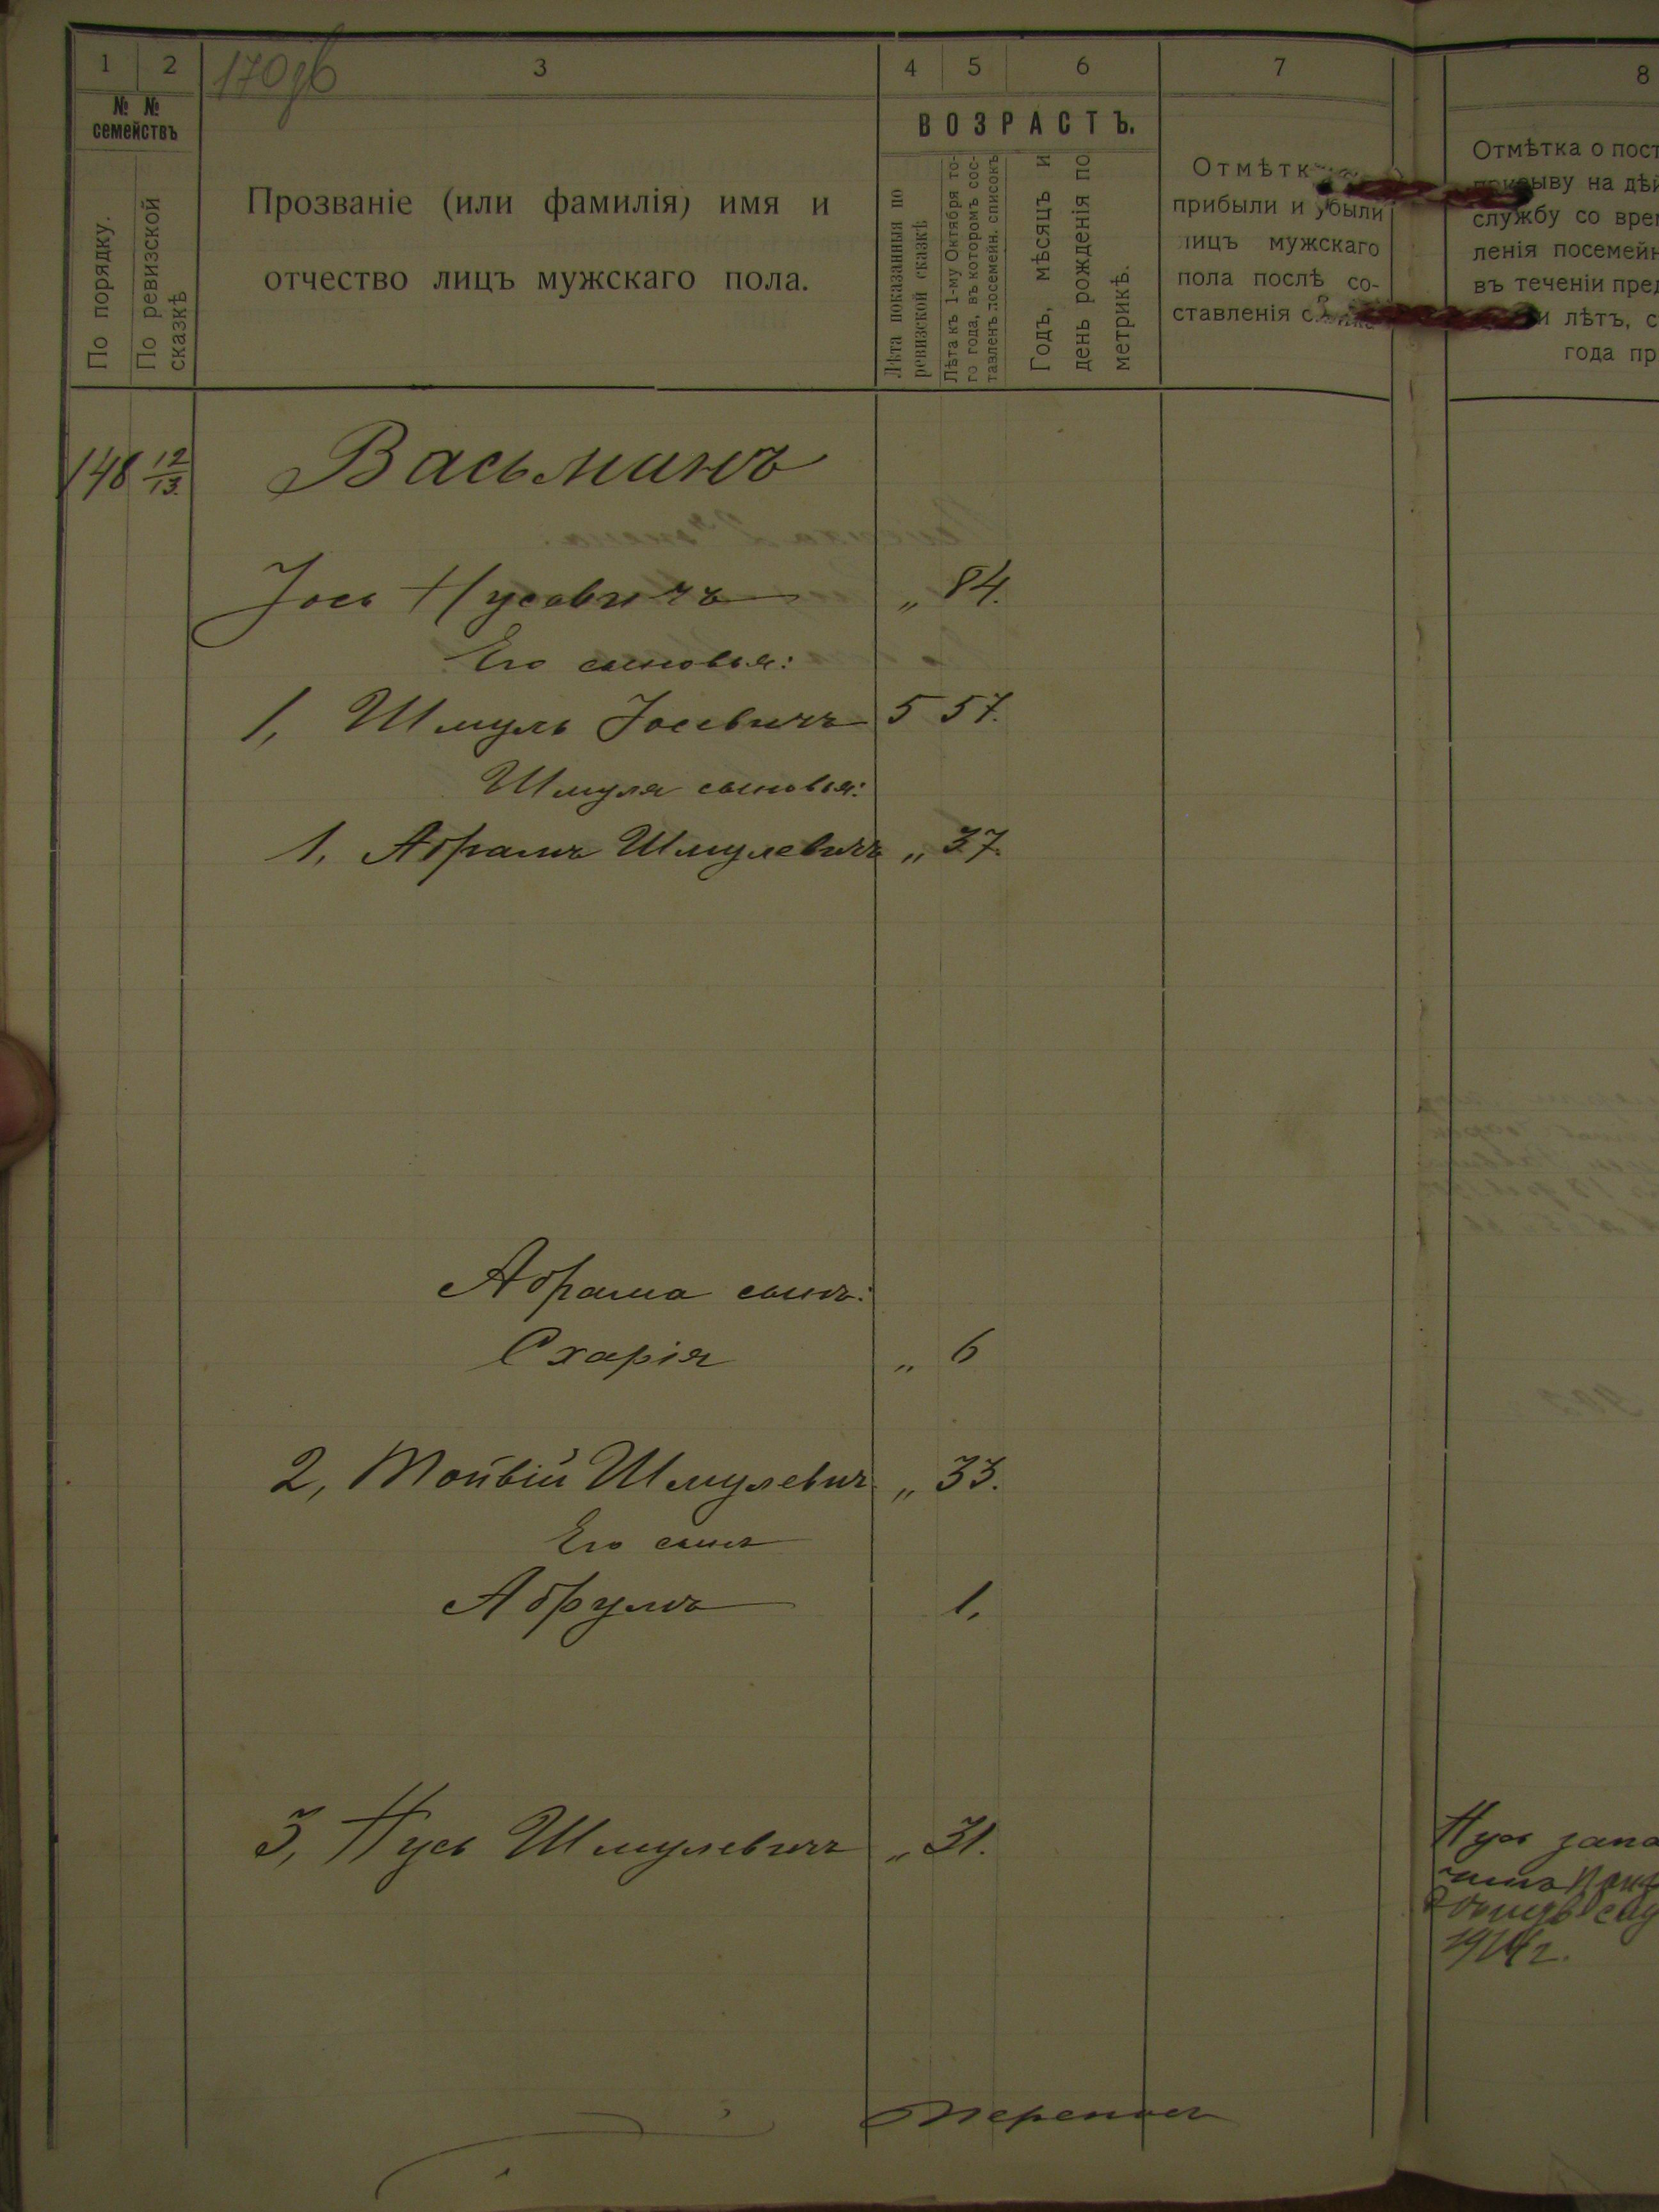 1 2 3 4 5 6 7 8
170 об
№ № семействъ
По порядку.
По ревизской сказкѣ
Прозваніе (или фамилія) имя и
отчество лицъ мужскаго пола.
ВОЗРАСТЪ.
Лѣта показанныя по
ревизской сказкѣ
Лѣта къ 1-му Октября то-
го года, въ которомъ сос-
тавленъ посемейн. списокъ
Годъ, мѣсяцъ и
день рожденія по
метрикѣ.
Отмѣтк
прибыли и убыли
лицъ мужскаго
пола послѣ со-
ставленія
Отмѣтка о пост
призыву на дѣй
службу со врем
ленія посемейн
въ теченіи пред
и лѣтъ, с
года пр
148 12/13. Васьминъ
Іось Нусовичъ „ 84.
Его сыновья:
1, Шмуль Іосевичъ 5 57.
Шмуля сыновья:
1, Абрамъ Шмулевичъ „ 37.
Абрама сынъ:
Схарія „ 6
2, Мойвій Шмулевич „ 33.
Его сынъ
Абрумъ 1.
3, Нусь Шмулевичъ „ 31.
Нусь запа
1914 г.